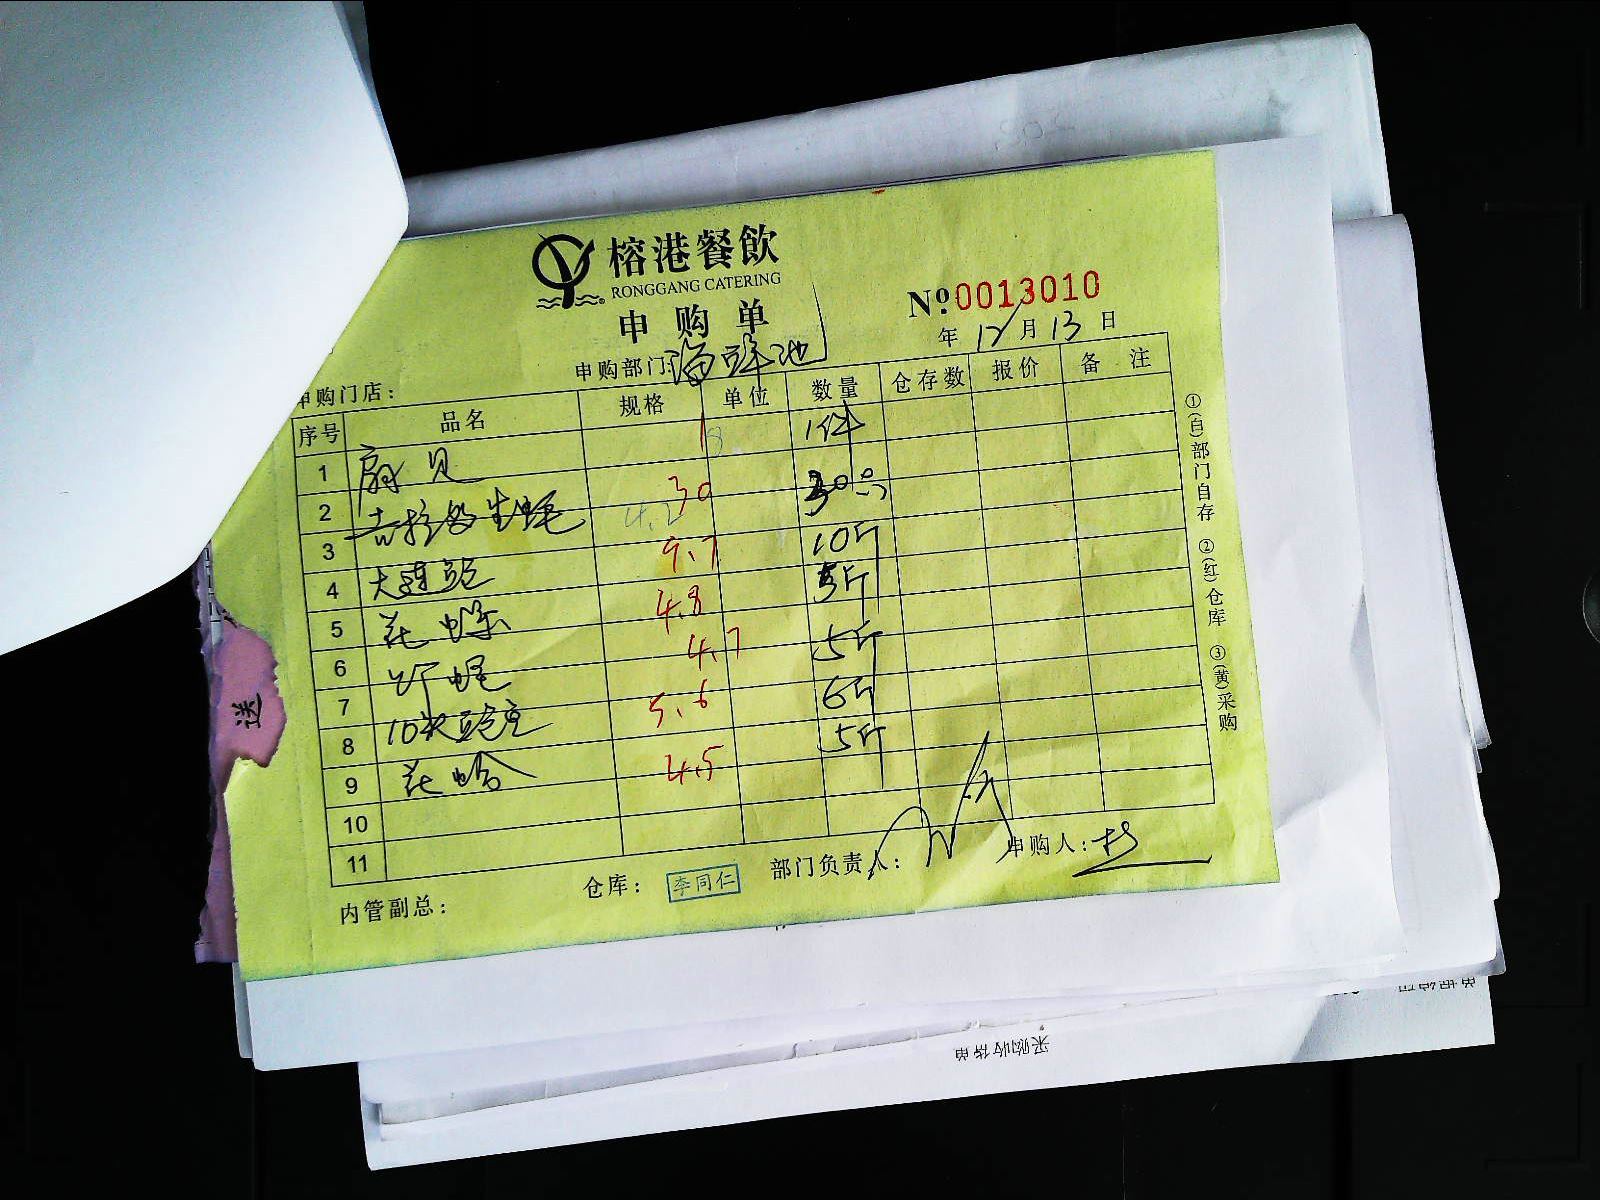 榕港餐飲
RONGGANG CATERING
申购单
№0013010
年 12月 13日
申购部门:海鲜池
申购门店：
序号 品名 规格 单位 数量 仓存数 报价 备注
1 扇贝 1 1件
2 吉拉多生蚝 30 4.2 30只
3 大连鲍 9.7 10斤
4 花螺 4.8 5斤
5 4.7 5斤
6 10头鲍 5.6 6斤
7 花蛤 4.5 5斤
8
9
10
11
①(白)部门自存 ②(红)仓库 ③(黄)采购
内管副总： 仓库： 李同仁 部门负责人： 申购人：杨
送
采购收货单